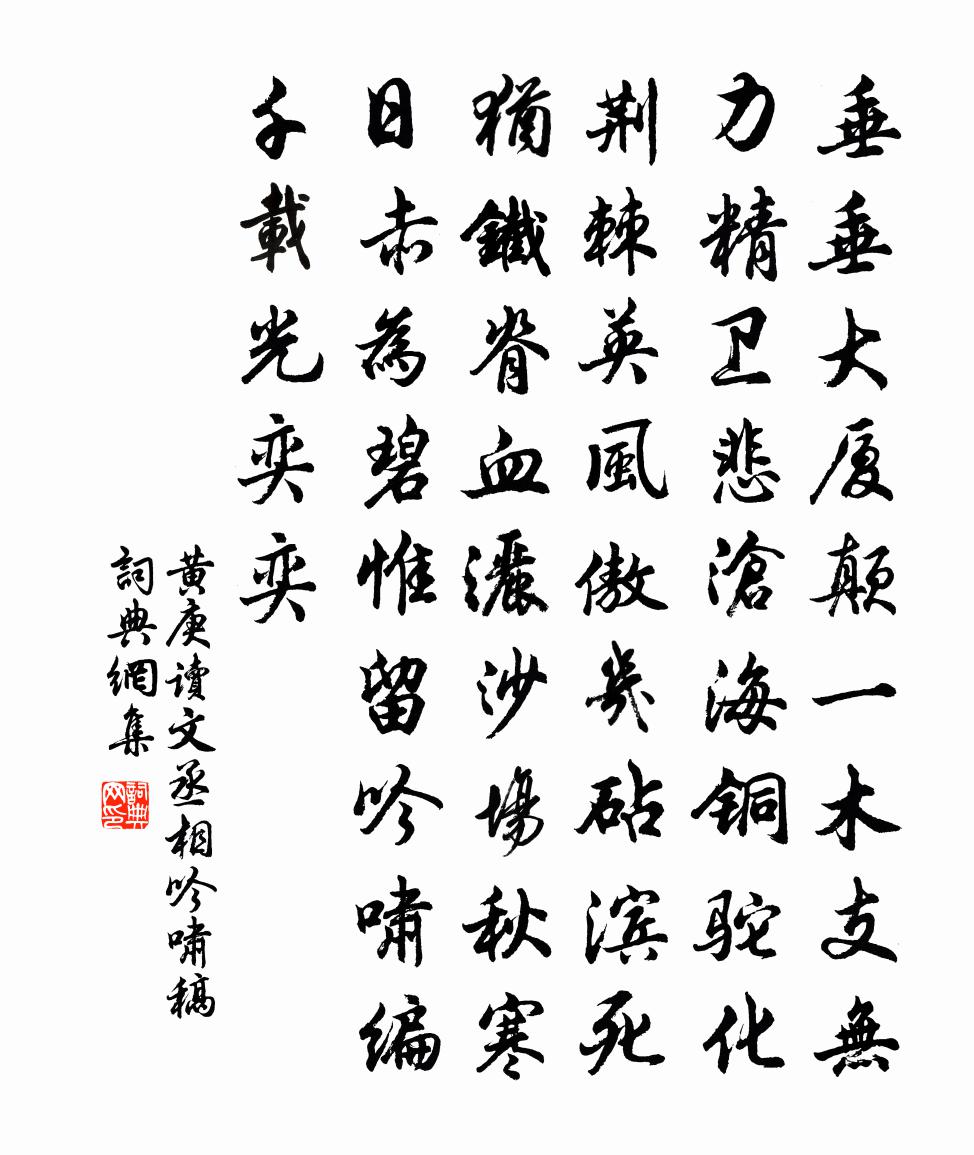 垂垂大厦颠一木支無
力精卫悲滄海铜驼化
荆棘英風傲幾砧滨死
猶鐵脊血灑沙場秋寒
日赤為碧惟留吟啸编
千載光奕奕
黄庚读文丞相吟啸稿
詞典網集
詞典网印